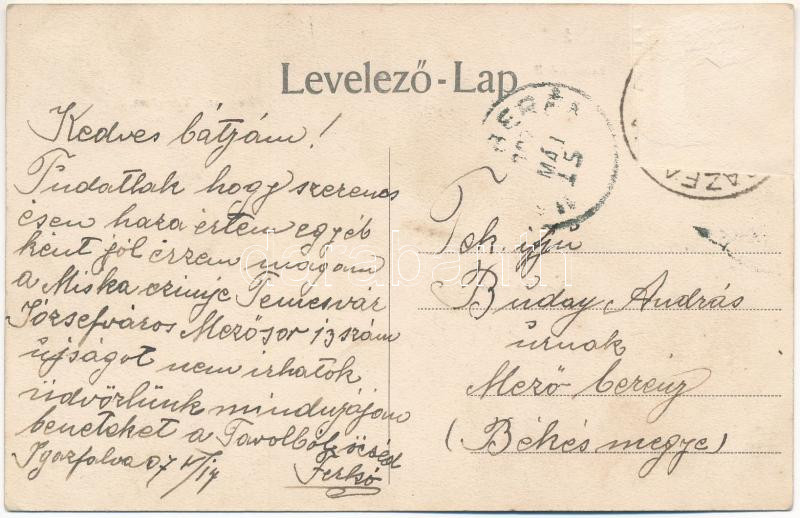 Levelező-Lap
Kedves bátyám!
Tudatlak hogy szerencs
ésen haza értem egyéb
ként jól érzem magam
a Miska czimje Temesvár
Józsefváros Mezősor 13 szám
újságot nem irhatok
üdvözlünk mindnyájan
beneteket a Tavolból öcséd
Igazfalva 07 V/14 Ferkó
BERÉN
MÁJ
15
AZFA
T
Tek. ifju
Buday András
urnak
Mező berény
(Békés megye)
darabanth